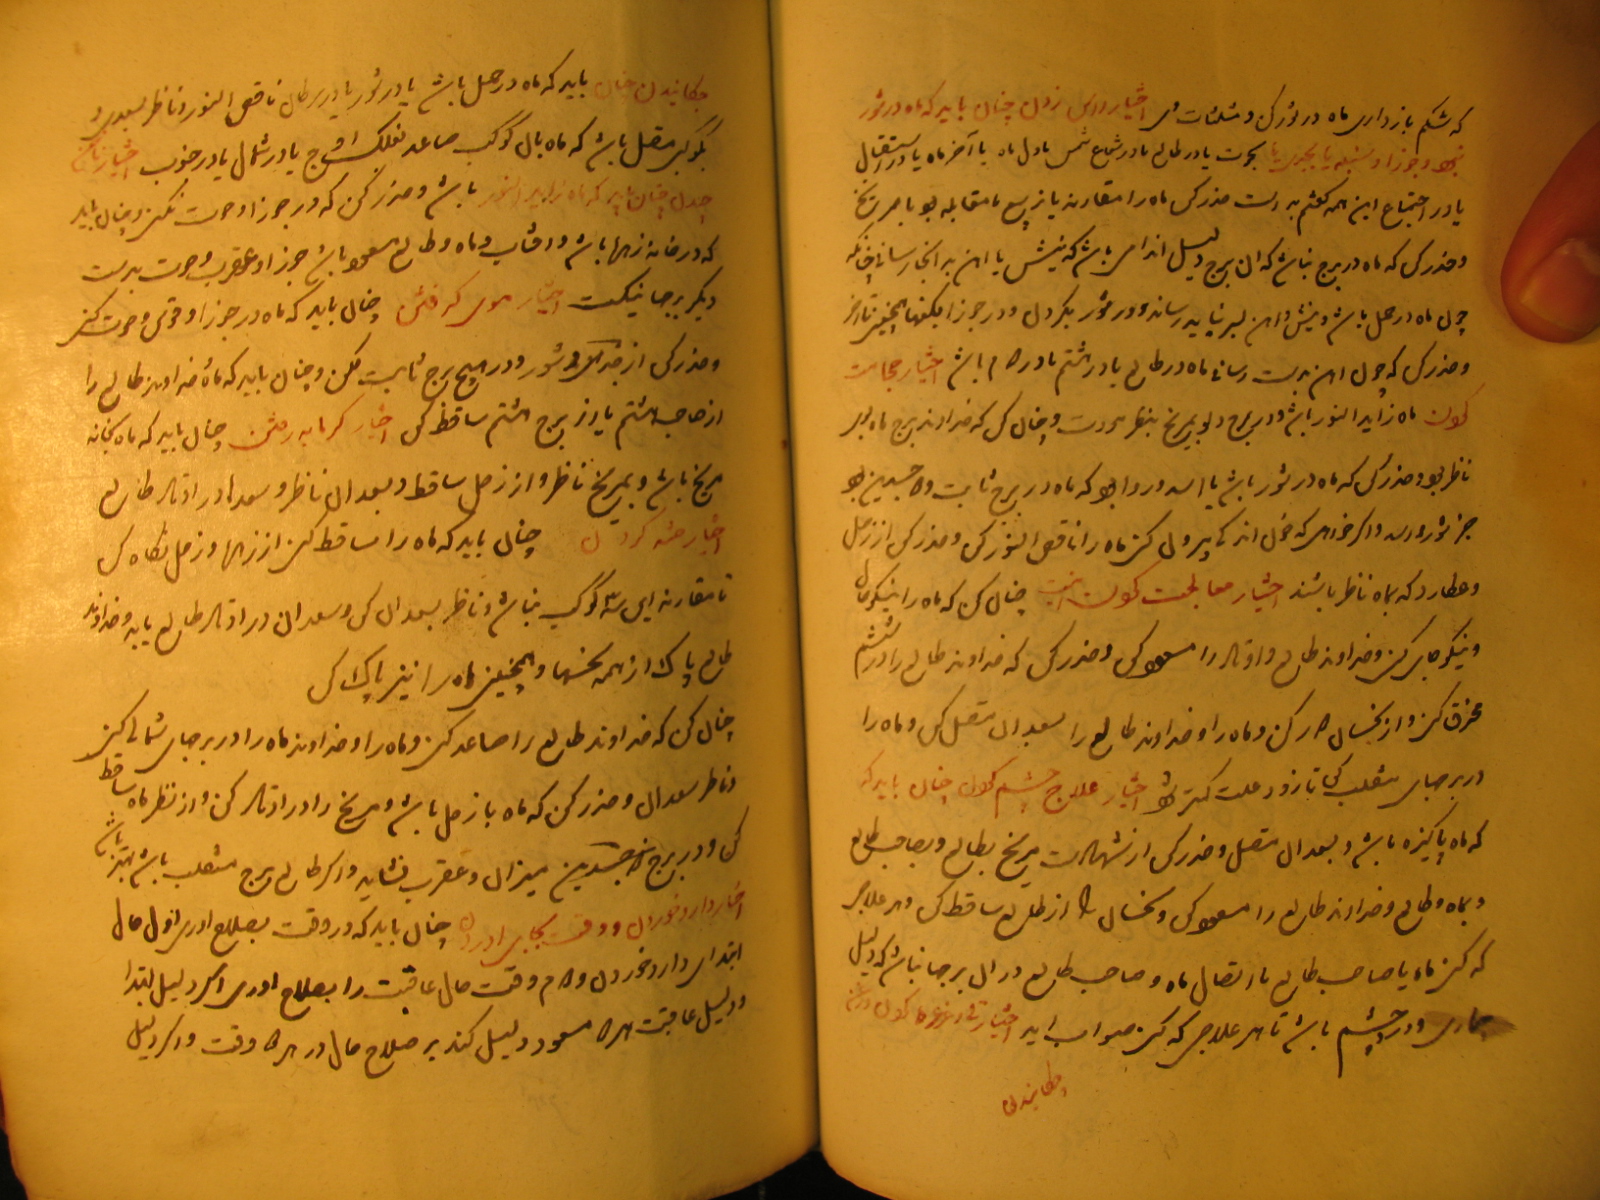 که شکم باز داری ماه در ثور کن و مثلثات وی اختیار دای زدن چنان باید که ماه در ثور
بود و جوزا و سنبله یا بجدی یا بحوت یا در طالع یا در شعاع شمس باول ماه یا آخر ماه یا در استقبال
یا در اجتماع این همه گفتم بد است حذر کن ماه را مقارنه یا تربیع یا مقابله بود با مریخ
و حذر کن که ماه در برج نباشد که ان برج دلیل اندامی باشد که نیش یا اهن بد انجا رسانی چنانکه
چون ماه در حمل باشد و نیش و اهن بسر نباید رساند و در ثور بکردن و در جوزا بکتفها همچنین تا اخر
و حذر کن که چون اهن بدست رسانی ماه در طالع یا در هشتم یا در باشد اختیار حجامت
کردن ماه زاید النور باشد و در برج و مریخ بنظر مودت و چنان کن که خداوند برج ماه بوی
ناظر بود و حذر کن که ماه در ثور باشد یا اسد و روا بود که ماه در برج ثابت و ذو جسدین بود
جز ثور و اسد و اکر خواهی که خون اندک بیرون کنی ماه را ناقص النور کن و حذر کن از زحل
و عطارد که بماه ناظر باشند اختیار معالجت کردن چنان کن که ماه را نیکو حال
و نیکو جای کنی و خداوند طالع و اوتاد را مسعود کن و حذر کن که خداوند طالع را در ششم
محترق کنی و از نحسان دور کن و ماه را و خداوند طالع را بسعدان متصل کن و ماه را
در برجهای منقلب کن تا زود علت کمتر شود اختیار علاج چشم کردن چنان باید که
که ماه پاکیزه باشد و بسعدان متصل و حذر کن از شهادت مریخ بطالع و بصاحب طالع
و بماه و طالع و خداوند طالع را مسعود کن و نحسان را از طالع ساقط کن و هر علاجی
که کنی ماه یا صاحب طالع یا اتصال ماه و صاحب طالع در ان برجها نباشد که دلیل
بیماری و درد چشم باشد تا هر علاجی که کنی صواب اید اختیار کردن و در
چکانیدن
چکانیدن چنان باید که ماه در حمل باشد یا در ثور یا در سرطان ناقص النور و ناظر بسعدی و
بکوکبی متصل باشد که ماه بان کوکب صاعد بفلک اوج یا در شمال یا در جنوب اختیار
چنان باید که ماه زاید النور باشد و حذر کن که در جوزا و حوت نکنی و چنان باید
که در خانهٔ زهره باشد و افتاب و ماه و طالع مسعود باشد جوزا و عقرب و حوت بد است
دیکر برجها نیکست اختیار موی که فتن چنان باید که ماه در جوزا و قوس و حوت کنی
و حذر کن از و ثور و در هیچ برج ثابت مکن و چنان باید که ماه خداوند طالع را
از صاحب هشتم یا از برج هشتم ساقط کن اختیار کرمابه رفتن چنان باید که ماه بخانه
مریخ باشد و بمریخ ناظر و از زحل ساقط و بسعدان ناظر و سعدها در اوتاد طالع
اختیار ختنه کردن چنان باید که ماه را ساقط کنی از زهره و زحل نکاه کن
تا مقارنه این سه کوکب نباشد و ناظر بسعدان کن و سعدان در اوتاد طالع یابد و خداوند
طالع پاک از همه نحسها و همچنین ماه را نیز پاک کن
چنان کن که خداوند طالع را صاعد کنی و ماه را و خداوند ماه را در برجهای شمالی کنی
و ناظر سعدان و حذر کن که ماه با زحل باشد و مریخ را در اوتاد کن و از نظر ماه ساقط
کن و در برج ذو جسدین میزان و عقرب نشاید و اکر طالع برج منقلب باشد بهتر باشد
اختیار دارو خوردن و وقت بجای اوردن چنان باید که در وقت بصلاح اوری اول حال
ابتدای دارو خوردن و هم وقت حال عاقبت را بصلاح اوری اکر دلیل ابتدا
و دلیل عاقبت هر دو مسعود دلیل کند بر صلاح حال در هر دو وقت و اکر دلیل